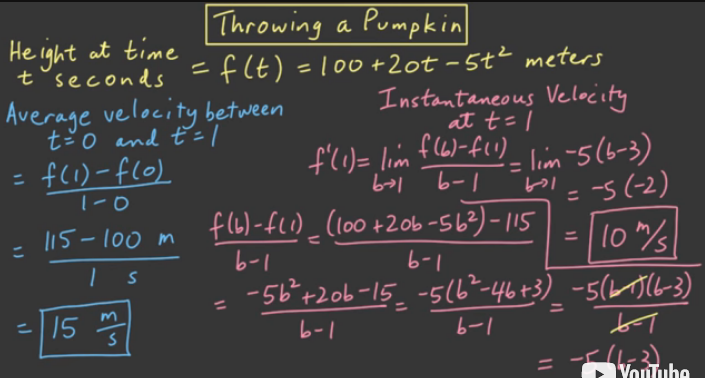 Throwing a Pumpkin
Height at time
t seconds = f(t) = 100 + 20t - 5t² meters
Average velocity between
t=0 and t=1
= f(1) - f(0) / 1-0
= 115-100 m / 1 s
= 15 m/s
Instantaneous Velocity
at t=1
f'(1) = lim b→1 f(b)-f(1) / b-1 = lim b→1 -5(b-3)
= -5(-2)
= 10 m/s
f(b)-f(1) / b-1 = (100+20b-5b²)-115 / b-1
= -5b²+20b-15 / b-1 = -5(b²-4b+3) / b-1 = -5(b-1)(b-3) / b-1
= -5(b-3)
YouTube